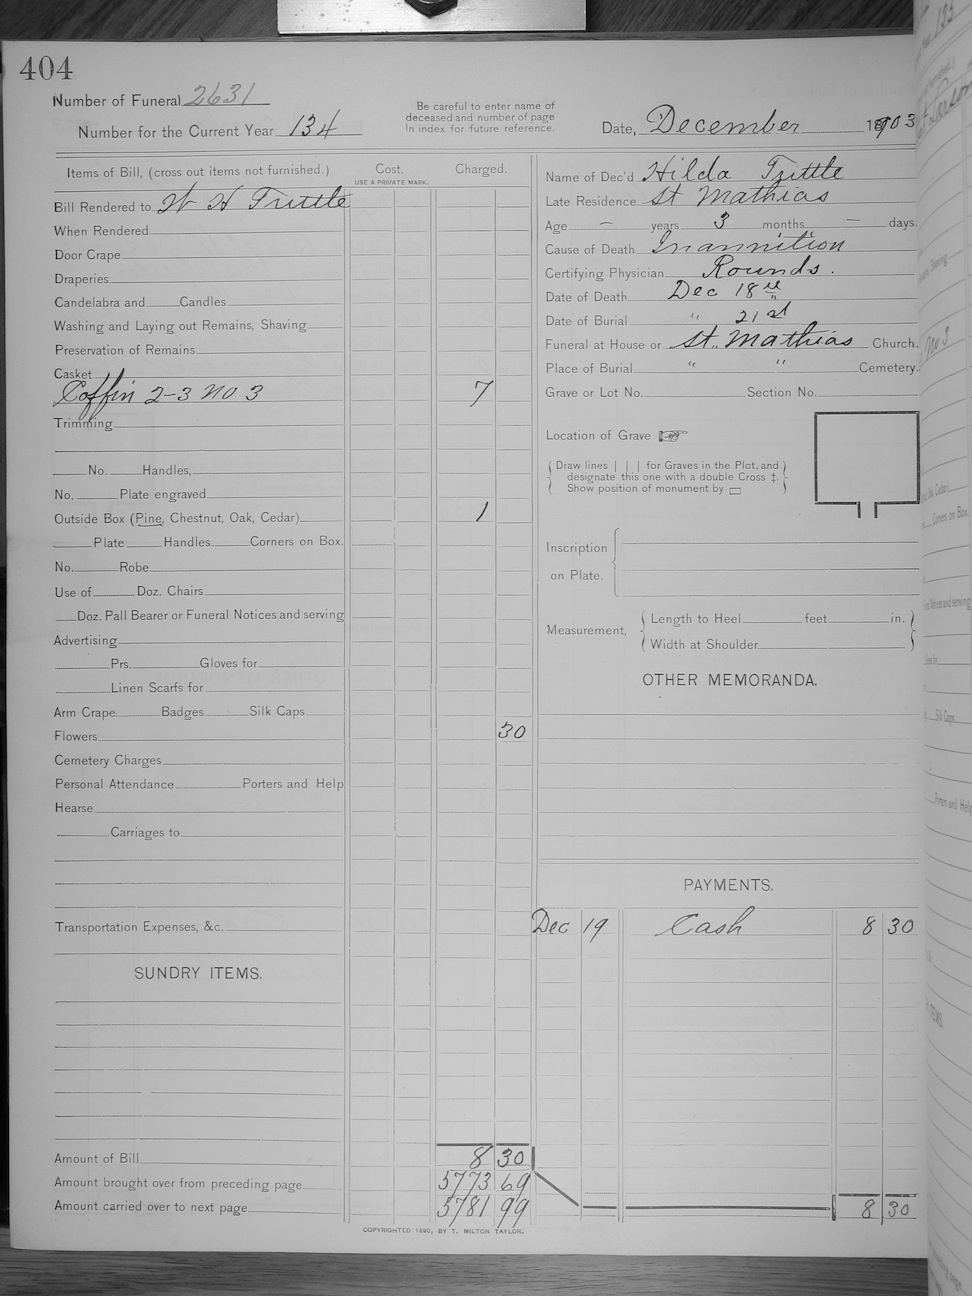 404
Number of Funeral 2631
Number for the Current Year 134
Be careful to enter name of
deceased and number of page
In index for future reference.
Date, December 1903
Items of Bill, (cross out items not furnished.)
Cost.
USE A PRIVATE MARK.
Charged.
Bill Rendered to W H Tuttle
When Rendered
Door Crape
Draperies
Candelabra and Candles
Washing and Laying out Remains, Shaving
Preservation of Remains
Casket
Coffin 2-3 No 3 7
Trimming
No. Handles,
No. Plate engraved
Outside Box (Pine, Chestnut, Oak, Cedar) 1
Plate Handles Corners on Box.
No. Robe
Use of Doz. Chairs
Doz. Pall Bearer or Funeral Notices and serving
Advertising
Prs. Gloves for
Linen Scarfs for
Arm Crape Badges Silk Caps
Flowers 30
Cemetery Charges
Personal Attendance Porters and Help
Hearse
Carriages to
Transportation Expenses, &c.
SUNDRY ITEMS.
Amount of Bill 8 30
Amount brought over from preceding page 5773 69
Amount carried over to next page 5781 99
COPYRIGHTED 1890, BY T. MILTON TAYLOR.
Name of Dec'd Hilda Tuttle
Late Residence St Mathias
Age — years 3 months — days.
Cause of Death Inannition
Certifying Physician Rounds.
Date of Death Dec 18th
Date of Burial " 21st
Funeral at House or St. Mathias Church.
Place of Burial " " Cemetery.
Grave or Lot No. Section No.
Location of Grave
Draw lines | | | for Graves in the Plot, and
designate this one with a double Cross ‡.
Show position of monument by
Inscription
on Plate.
Measurement,
Length to Heel feet in.
Width at Shoulder
OTHER MEMORANDA.
PAYMENTS.
Dec 19 Cash 8 30
8 30